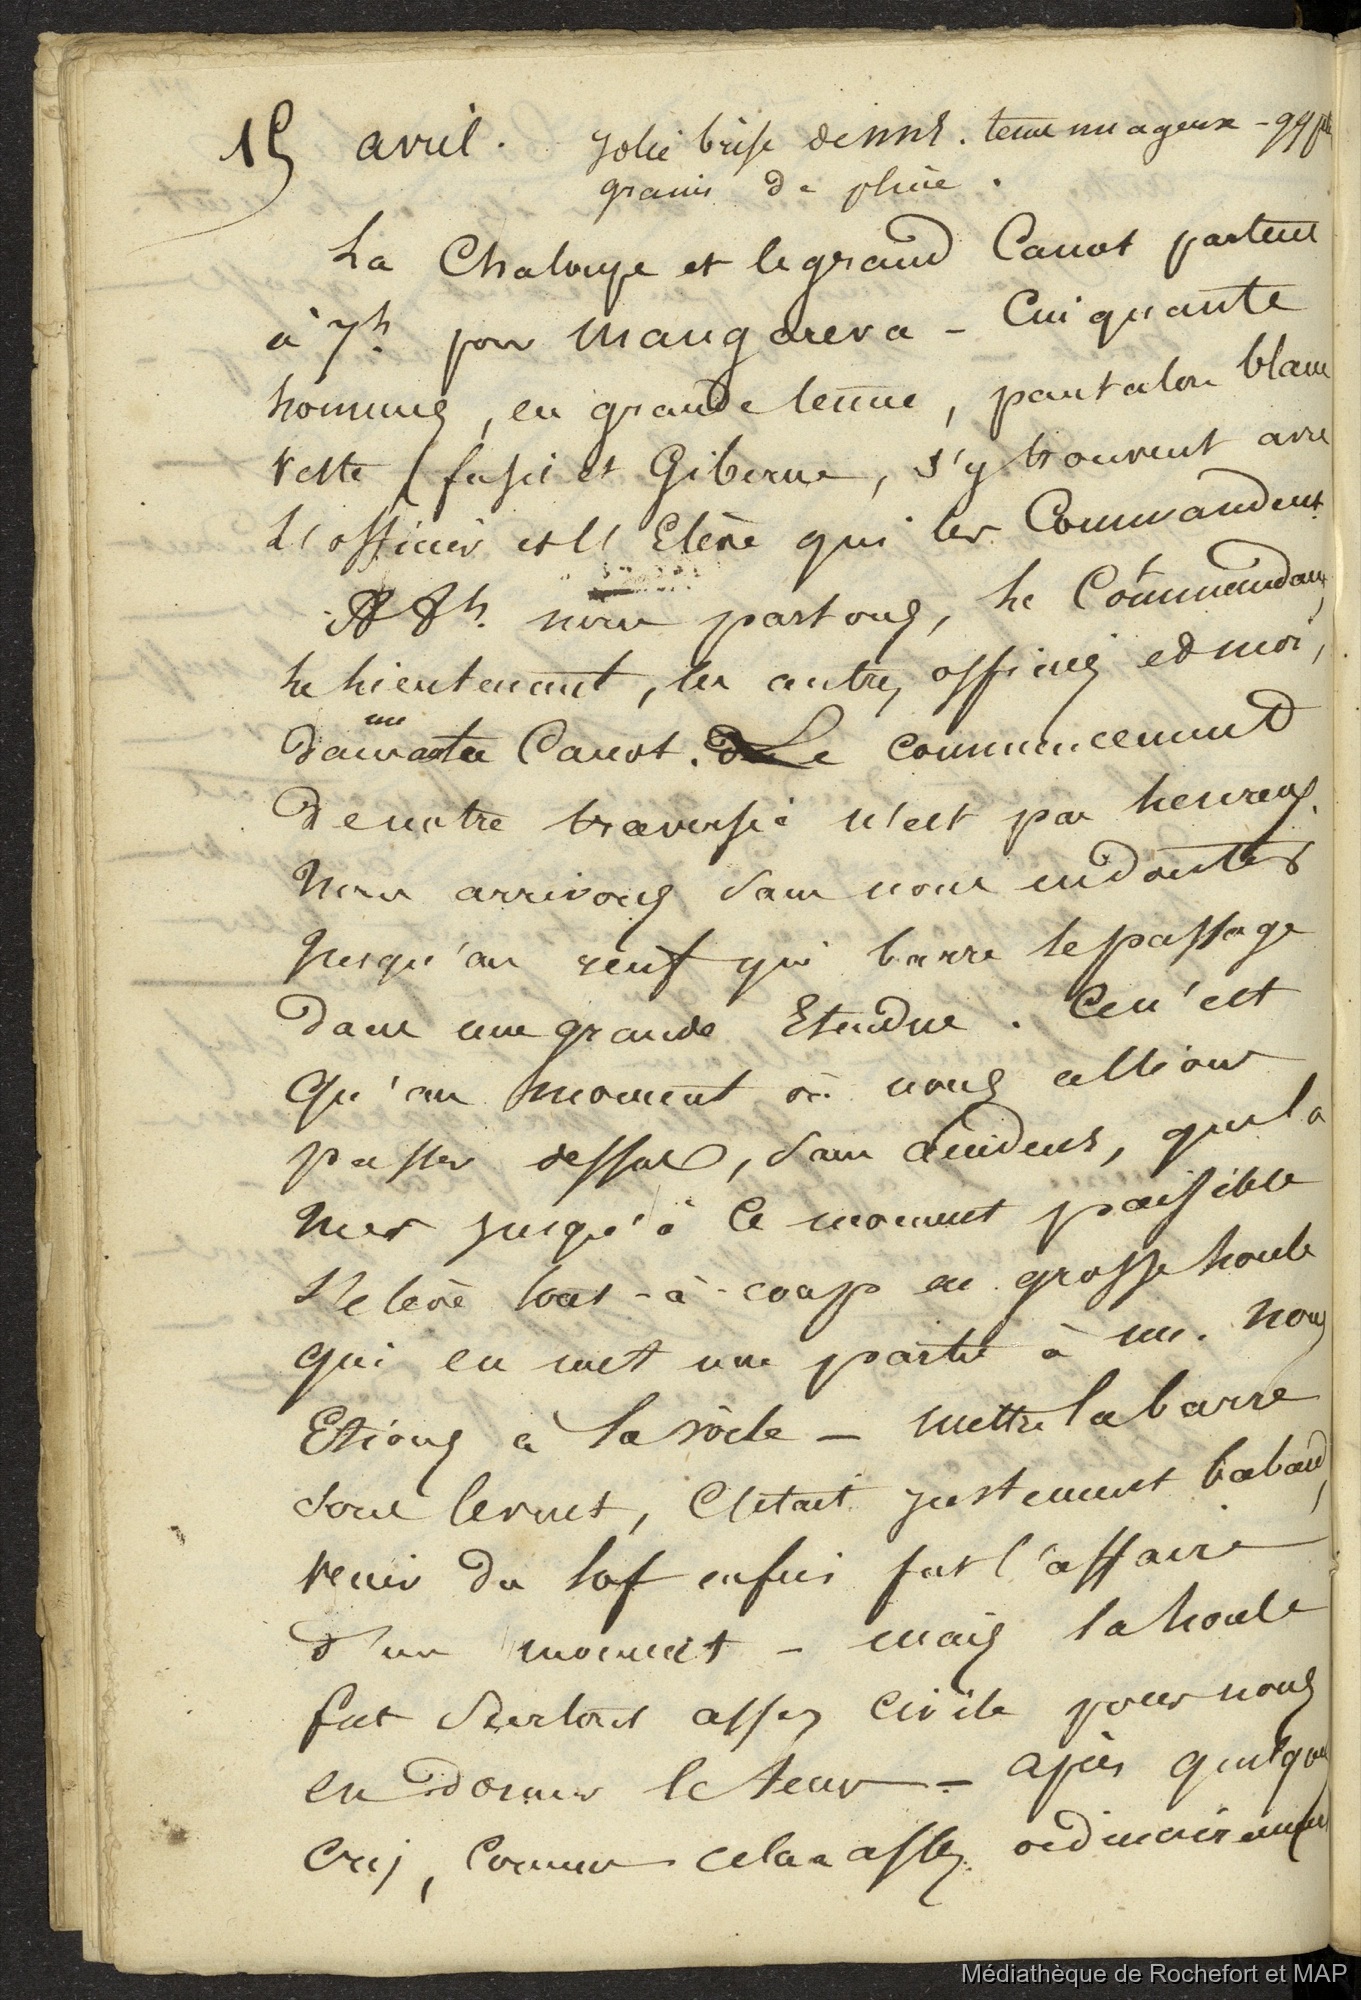 15 avril. Jolie brise de NNE. tems nuageux - qq
grains de pluie.
La Chaloupe et le grand Canot partent
à 7h. pour Mangareva - Cinquante
hommes, en grande tenue, pantalon blanc
veste, fusil et Giberne, s'y trouvent avec
l'officier et l'Elève qui les Commandent.
A 8h. nous partons, le Commandant,
le Lieutenant, les autres officiers et moi,
dans un autre Canot. Le commencement
de notre traversée n'est pas heureux.
Nous arrivons sans nous en douter
jusqu'au récif qui barre le passage
dans une grande Etendue. Ce n'est
qu'au moment où nous allions
passer dessus, sans accidens, que la
mer jusqu'à ce moment paisible
s'elève tout-à-coup en grosse houle
qui en met une partie à nu. Nous
Etions à la voile - mettre la barre
sous le vent, C'etait justement babord,
venir du lof enfin fut l'affaire
d'un moment - mais la houle
fut surtout assez civile pour nous
en donner le tems - après quelques
cris, comme cela a assez ordinairement
Médiathèque de Rochefort et MAP